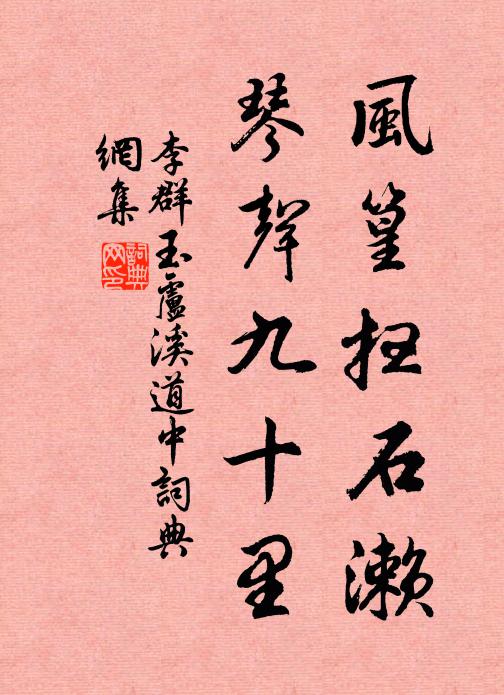 風篁掃石瀨
琴聲九十里
李群玉盧溪道中詞典
網集
詞典
网印